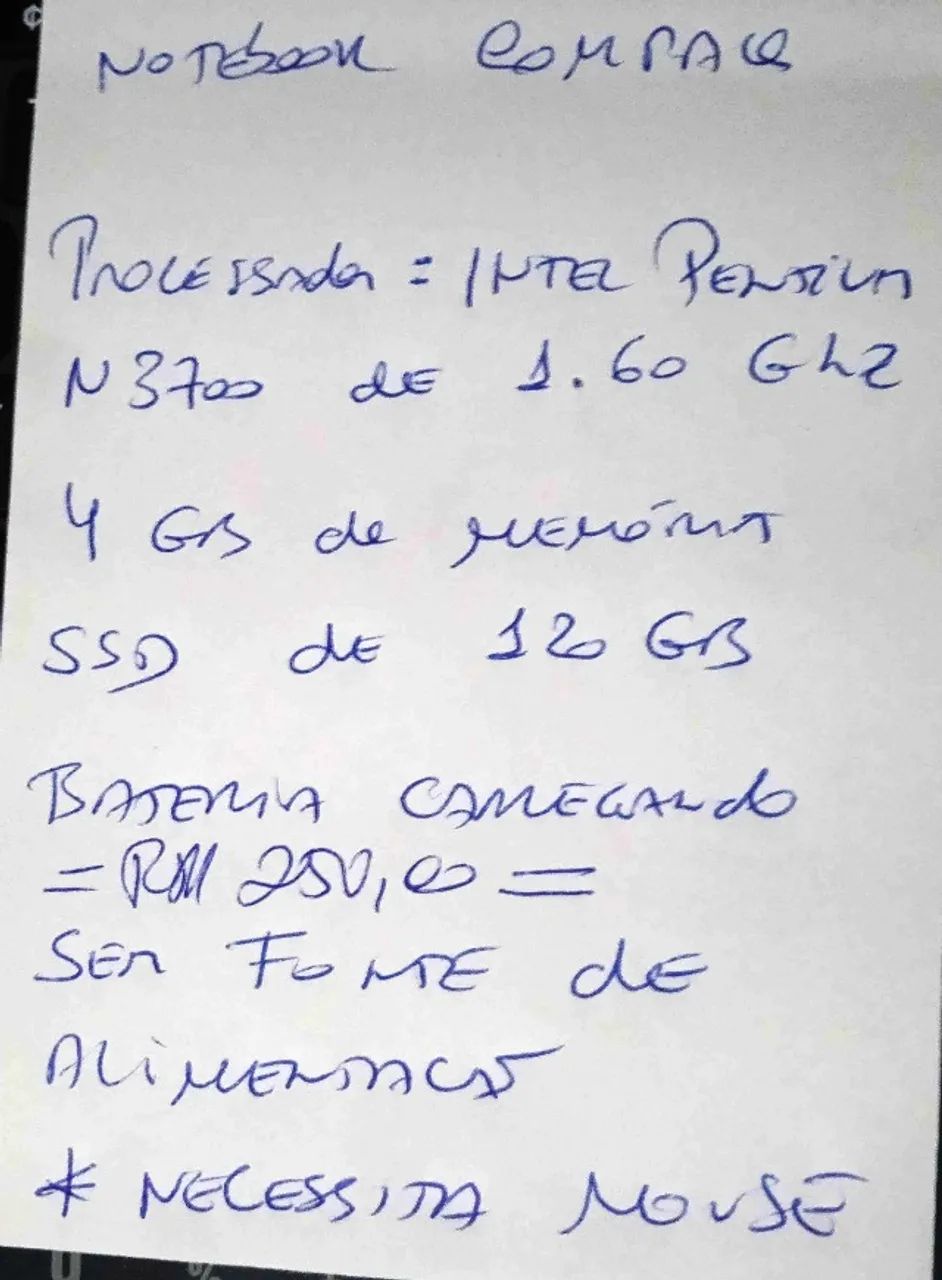 NOTEBOOK COMPAQ
PROCESSADOR = INTEL PENTIUM
N3700 de 1.60 GhZ
4 GB de MEMÓRIA
SSD de 120 GB
BATERIA CARREGANDO
= 250,00 =
SEM FONTE de
ALIMENTAÇÃO
* NECESSITA MOUSE